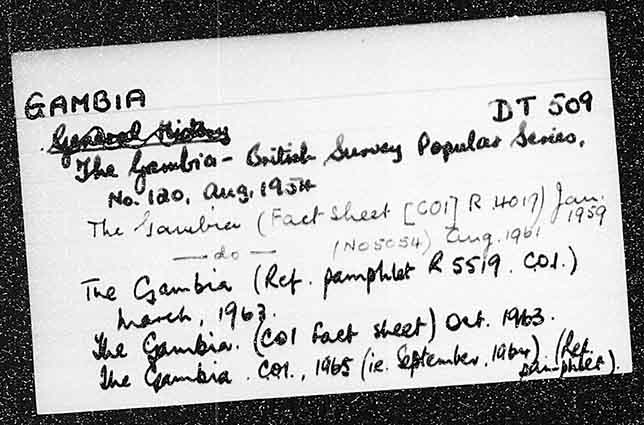 GAMBIA
DT 509
General History
The Gambia - British Survey Popular Series,
No. 120, Aug, 1954
The Gambia (Fact Sheet [COI] R 4019) Jan. 1959
— do — (No 5054) Aug. 1961
The Gambia (Ref. pamphlet R 5519. COI.)
March, 1963.
The Gambia. (COI Fact sheet) Oct. 1963.
The Gambia. COI., 1965 (ie. September, 1964) (Ref. pamphlet).